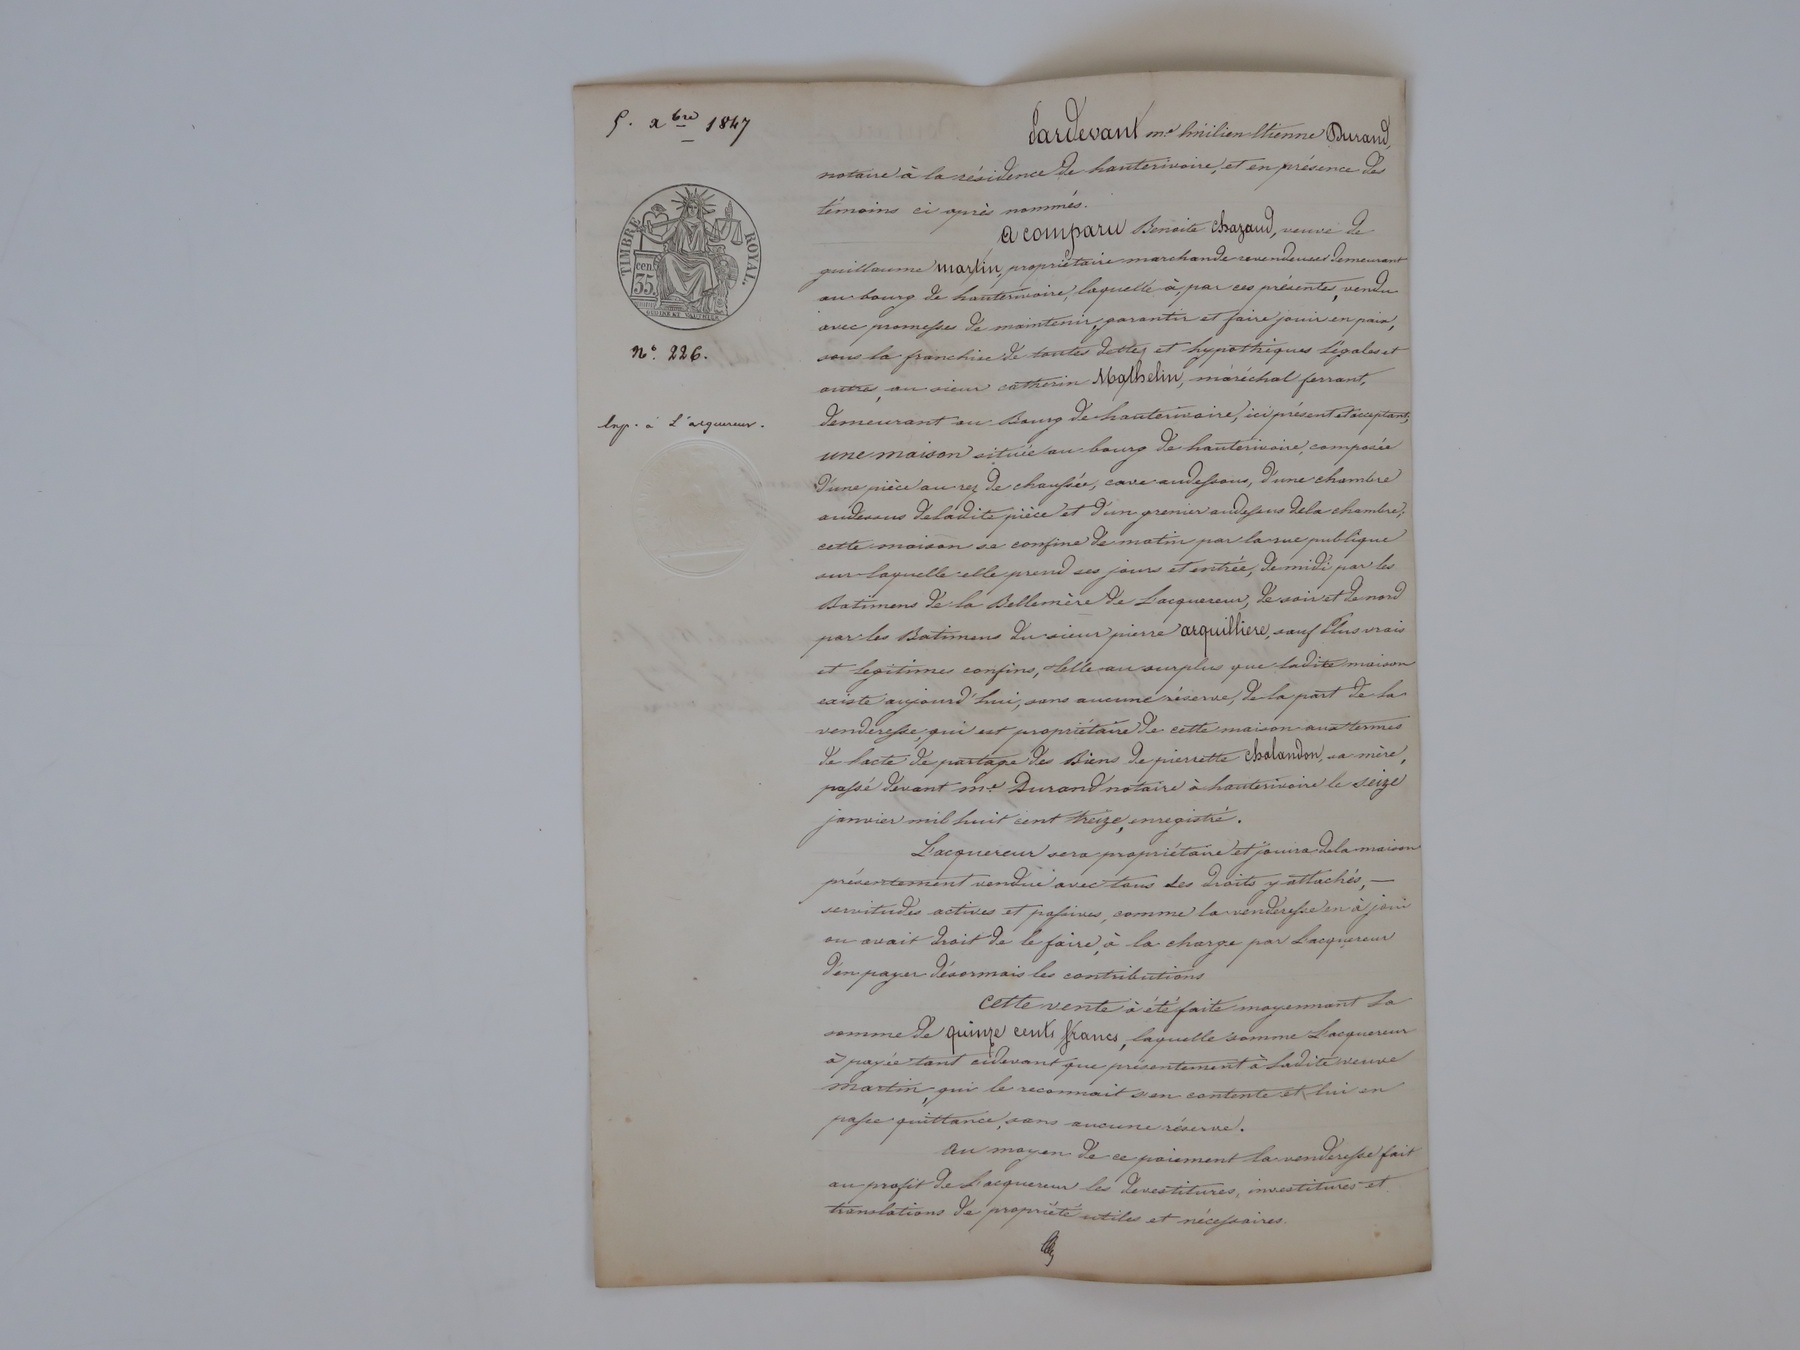 5. xbre 1847
TIMBRE ROYAL.
35 cen.
N°. 226.
Exp. à L'acquereur.
Pardevant me Emilien Etienne Durand,
notaire à la résidence de hauterivoire, et en présence des
témoins ci après nommés.
a comparu Benoite chazaud, veuve de
guillaume martin, propriétaire marchande revendeuse demeurant
au bourg de hauterivoire, laquelle à, par ces présentes, vendu
avec promesses de maintenir, garantir et faire jouir en paix,
sous la franchise de toutes dettes et hypothèques légales et
autres, au sieur catherin Mathelin, maréchal ferrant,
demeurant au Bourg de hauterivoire, ici présent et acceptant,
une maison située au bourg de hauterivoire, composée
d'une pièce au rez de chaussée, cave audessous, d'une chambre
audessus de ladite pièce et d'un grenier audessus dela chambre;
cette maison se confine de matin par la rue publique
sur laquelle elle prend ses jours et entrée, de midi par les
Batimens de la Bellemère de L'acquereur, de soir et de nord
par les Batimens du sieur pierre arquilliere, sauf Plus vrais
et legitimes confins, telle au surplus que ladite maison
existe aujourd'hui, sans aucune réserve, de la part de la
venderesse, qui est propriétaire de cette maison aux termes
de lacte de partage des Biens de pierrette chalandon, sa mère,
passé devant me Durand notaire à hauterivoire le seize
janvier mil huit cent treize, enregistré.
L'acquereur sera propriétaire et jouira dela maison
présentement vendue avec tous les droits y attachés, —
servitudes actives et passives, comme la venderesse en à joui
ou avait droit de le faire, à la charge par L'acquereur
d'en payer désormais les contributions
Cette vente à été faite moyennant la
somme de quinze cents francs, laquelle somme L'acquereur
à payée tant cidevant que présentement à Ladite veuve
martin, qui le reconnait s'en contente et lui en
passe quittance, sans aucune réserve.
au moyen de ce paiement la venderesse fait
au profit de L'acquereur les devestitures, investitures et
translations de propriété utiles et nécessaires.